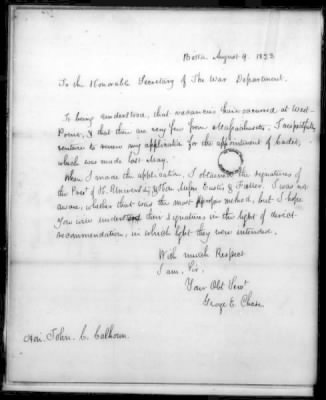 Boston August 9. 1823
To the Honorable Secretary of The War Department.
It being understood, that vacancies have occurred at West-
Point, & that there are very few from Massachusetts, I respectfully
venture to renew my application for the appointment of Cadet,
which was made last May.
When I made the application, I obtained the signatures of
the Prest of H. University & Messrs Eustis & Fuller. I was not
aware, whether that was the most proper method, but I hope
You will understand their signatures in the light of direct
recommendation, in which light they were intended.
With much Respect
I am, Sir,
Your Obt Servt
George E. Chase.
Hon. John. C. Calhoun.